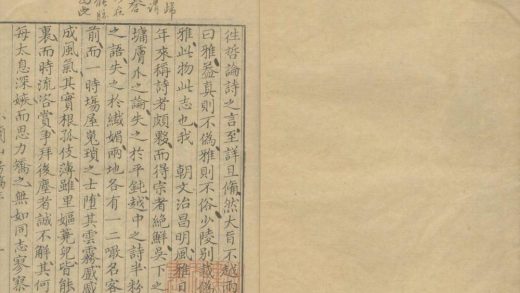 徃哲論詩之言至詳且備然大旨不越兩
曰雅葢真則不偽雅則不俗少陵别裁偽
雅此物此志也我 朝文治昌明風雅日
年來稱詩者頗夥而得宗者絶鮮吳下之
墉膚外之論失之於平鈍越中之詩半粉
之語失之於纖媚兩地各有一二噉名客
前而一時塲屋嵬瑣之士堕其雲霧
成風氣其實根孤伎薄雖里嫗兒皆能
裏而時流咨賞爭拜後塵者誠不解其何
每太息深嫉而思力矯之無如同志寥寥